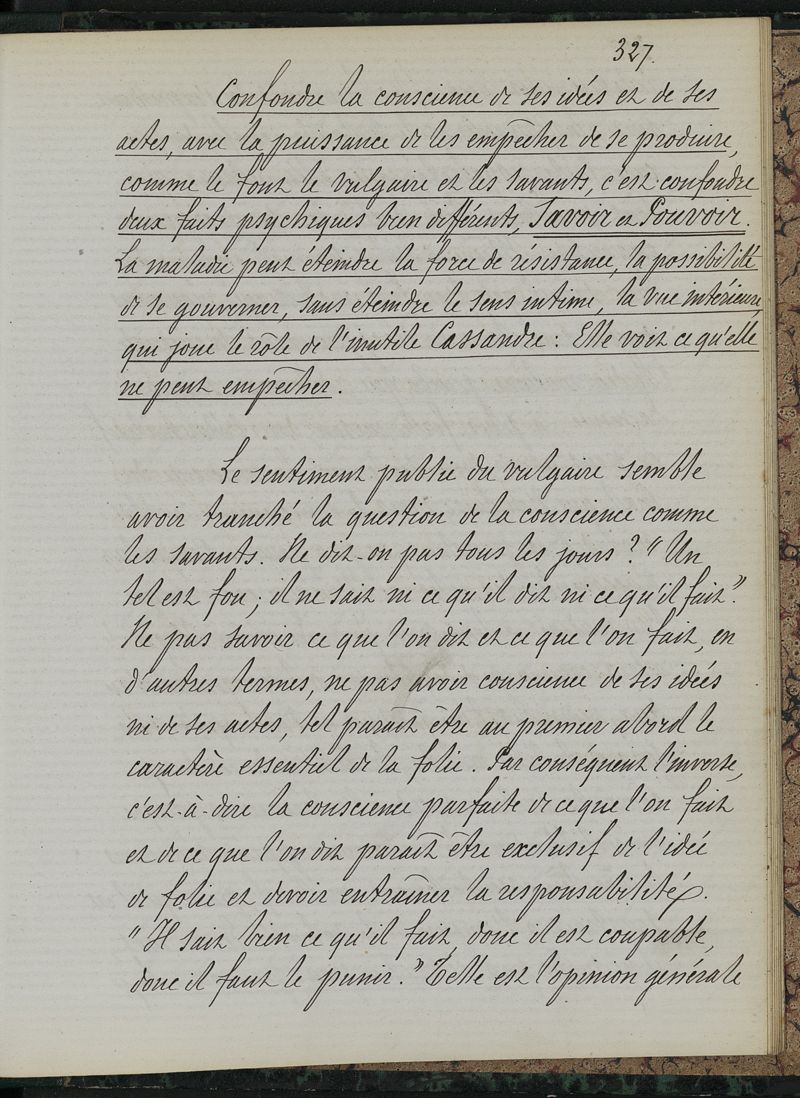 327.
Confondre la conscience de ses idées et de ses
actes, avec la puissance de les empêcher de se produire,
comme le font le vulgaire et les savants, c'est confondre
deux faits psychiques bien différents, Savoir et Pouvoir.
La maladie peut éteindre la force de résistance, la possibilité
de se gouverner, sans éteindre le sens intime, la vue intérieure,
qui joue le rôle de l'inutile Cassandre : Elle voit ce qu'elle
ne peut empêcher.
Le sentiment public du vulgaire semble
avoir tranché la question de la conscience comme
les savants. Ne dit-on pas tous les jours ? "Un
tel est fou ; il ne sait ni ce qu'il dit ni ce qu'il fait".
Ne pas savoir ce que l'on dit et ce que l'on fait, en
d'autres termes, ne pas avoir conscience de ses idées
ni de ses actes, tel paraît être au premier abord le
caractère essentiel de la folie. Par conséquent l'inverse,
c'est-à-dire la conscience parfaite de ce que l'on fait
et de ce que l'on dit paraît être exclusif de l'idée
de folie et devoir entraîner la responsabilité.
"Il sait bien ce qu'il fait, donc il est coupable,
donc il faut le punir." Telle est l'opinion générale